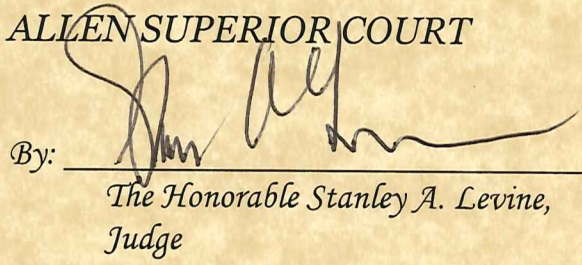 ALLEN SUPERIOR COURT
By:
The Honorable Stanley A. Levine,
Judge